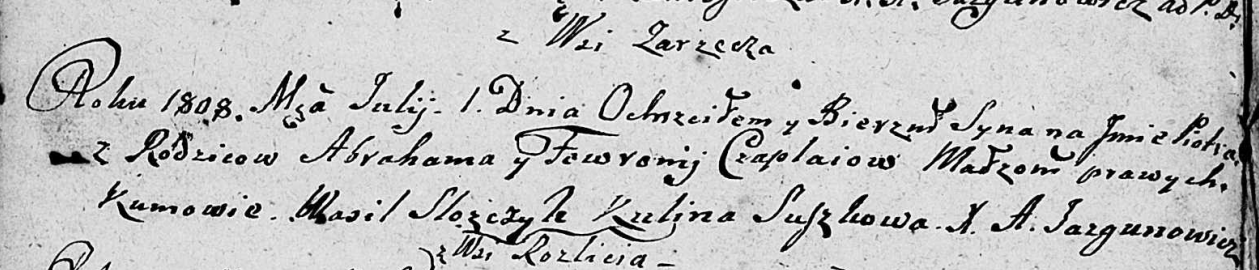 z Wsi Zarzecza
Roku 1808. Mca Julij. 1. Dnia Ochrzciłem y Bierzmł Syna na Jmie Piotra
z Rodzicow Abrahama y Fewronij Czaplaiow Małzom prawych.
Kumowie. Wasil Slozczyk Kulina Suszkowa. X. A. Jazgunowicz
z Wsi Rozlicia